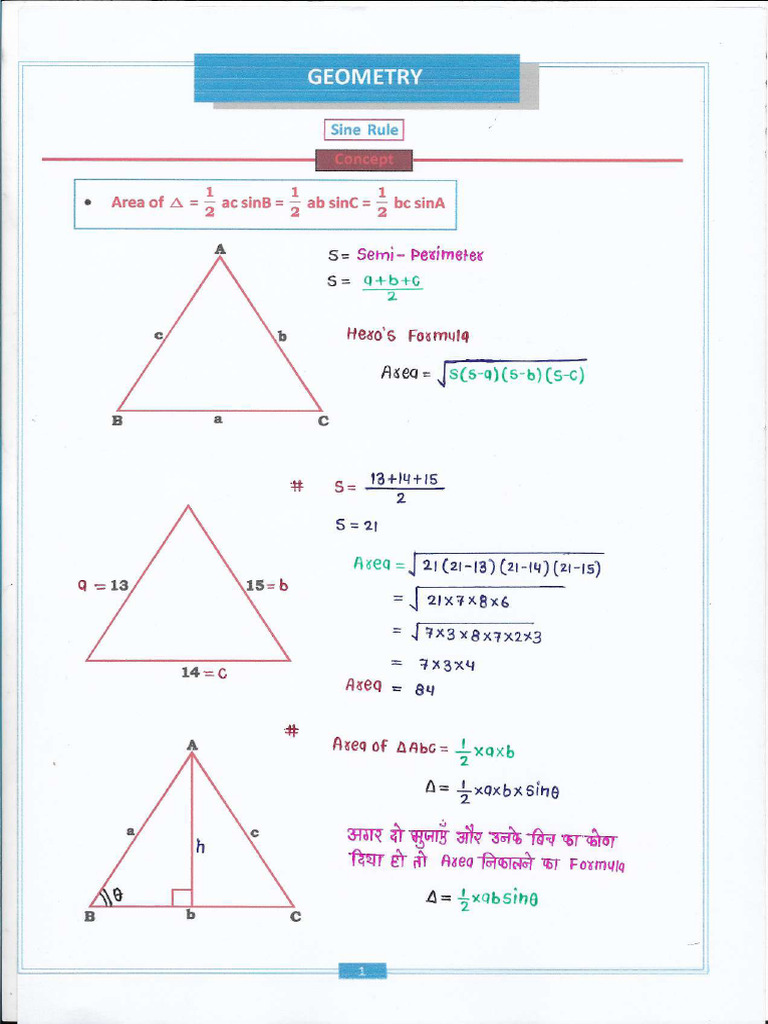 GEOMETRY
Sine Rule
Concept
• Area of Δ = 1/2 ac sinB = 1/2 ab sinC = 1/2 bc sinA
A
c
b
B
a
C
S = Semi-Perimeter
S = a+b+c/2
Hero's Formula
Area = √S(S-a)(S-b)(S-c)
# S = 13+14+15/2
S = 21
a = 13
15 = b
14 = c
Area = √21(21-13)(21-14)(21-15)
= √21×7×8×6
= √7×3×8×7×2×3
= 7×3×4
Area = 84
# Area of ΔAbC = 1/2 ×a×b
Δ = 1/2 ×a×b×sinθ
A
a
h
c
θ
B
b
C
अगर दो भुजाएँ और उनके बिच का कोण
दिया हो तो Area निकालने का Formula
Δ = 1/2 ×absinθ
1